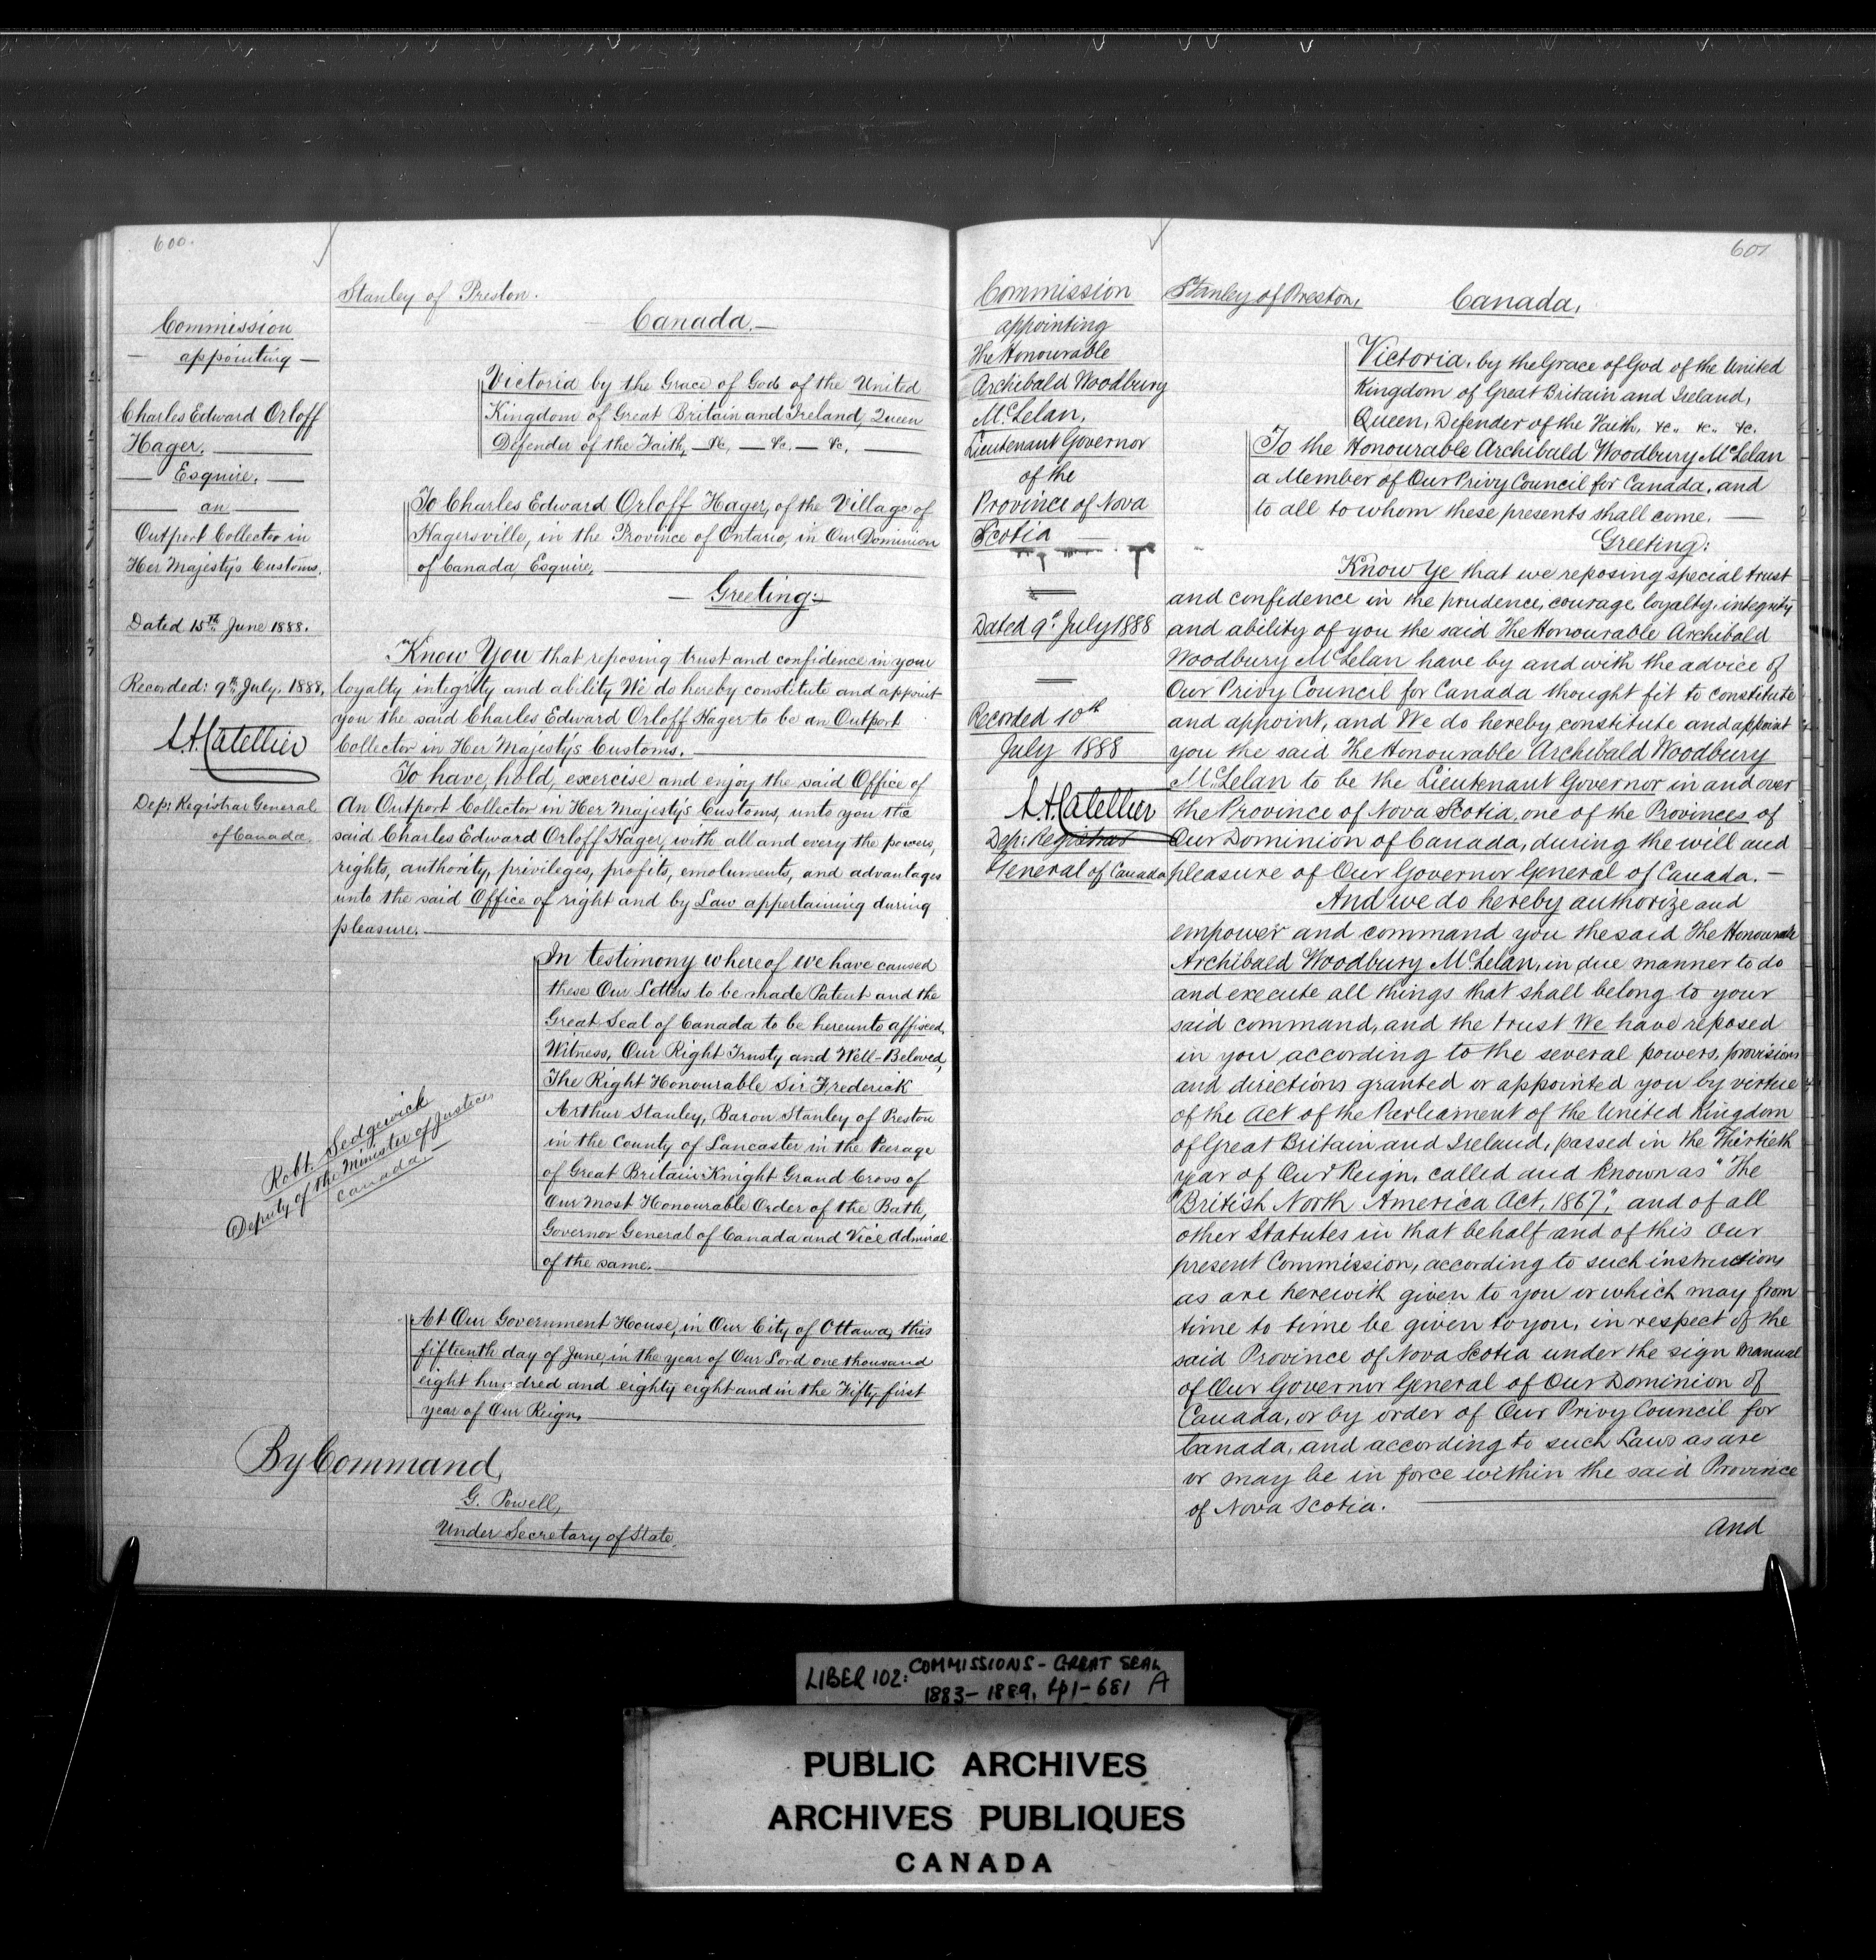 600.
Commission
appointing
Charles Edward Orloff
Hager,
Esquire,
an
Outport Collector in
Her Majesty's Customs.
Dated 15th June 1888.
Recorded: 9th July, 1888,
L.A. Catellier
Dep: Registrar General
of Canada.
Robt. Sedgewick
Deputy of the Minister of Justice,
Canada.
Stanley of Preston.
Canada.
Victoria by the Grace of God of the United
Kingdom of Great Britain and Ireland, Queen
Defender of the Faith, &c. &c. &c.
To Charles Edward Orloff Hager, of the Village of
Hagersville, in the Province of Ontario, in Our Dominion
of Canada, Esquire,
Greeting:
Know You that reposing trust and confidence in your
loyalty integrity and ability We do hereby constitute and appoint
you the said Charles Edward Orloff Hager to be an Outport
Collector in Her Majesty's Customs.
To have, hold, exercise and enjoy the said Office of
An Outport Collector in Her Majesty's Customs, unto you the
said Charles Edward Orloff Hager, with all and every the powers,
rights, authority, privileges, profits, emoluments, and advantages
unto the said Office of right and by Law appertaining during
pleasure.
In testimony whereof we have caused
these Our Letters to be made Patent and the
Great Seal of Canada to be hereunto affixed,
Witness, Our Right Trusty and Well-Beloved,
The Right Honourable Sir Frederick
Arthur Stanley, Baron Stanley of Preston
in the County of Lancaster in the Peerage
of Great Britain Knight Grand Cross of
Our Most Honourable Order of the Bath,
Governor General of Canada and Vice Admiral
of the same.
At Our Government House, in Our City of Ottawa, this
fifteenth day of June, in the year of Our Lord one thousand
eight hundred and eighty eight and in the Fifty first
year of Our Reign,
By Command,
G. Powell,
Under Secretary of State,
601
Commission
appointing
The Honourable
Archibald Woodbury
McLelan,
Lieutenant Governor
of the
Province of Nova
Scotia
Dated 9th July 1888
Recorded 10th
July 1888
L.A. Catellier
Dep: Registrar
General of Canada
Stanley of Preston,
Canada,
Victoria, by the Grace of God of the United
Kingdom of Great Britain and Ireland,
Queen, Defender of the Faith, &c., &c., &c.
To the Honourable Archibald Woodbury McLelan
a Member of Our Privy Council for Canada, and
to all to whom these presents shall come.
Greeting:
Know Ye that we reposing special trust
and confidence in the prudence, courage, loyalty, integrity
and ability of you the said The Honourable Archibald
Woodbury McLelan have by and with the advice of
Our Privy Council for Canada thought fit to constitute
and appoint, and We do hereby constitute and appoint
you the said The Honourable Archibald Woodbury
McLelan to be the Lieutenant Governor in and over
the Province of Nova Scotia, one of the Provinces of
Our Dominion of Canada, during the will and
pleasure of Our Governor General of Canada.
And we do hereby authorize and
empower and command you the said The Honourable
Archibald Woodbury McLelan, in due manner to do
and execute all things that shall belong to your
said command, and the trust We have reposed
in you according to the several powers, provisions
and directions granted or appointed you by virtue
of the Act of the Parliament of the United Kingdom
of Great Britain and Ireland, passed in the Thirtieth
year of Our Reign, called and known as "The
"British North America Act, 1867", and of all
other Statutes in that behalf and of this Our
present Commission, according to such instructions
as are herewith given to you or which may from
time to time be given to you, in respect of the
said Province of Nova Scotia under the sign manual
of Our Governor General of Our Dominion of
Canada, or by order of Our Privy Council for
Canada, and according to such Laws as are
or may be in force within the said Province
of Nova Scotia.
And
LIBER 102: COMMISSIONS - GREAT SEAL
1883-1889, pp1-681 A
PUBLIC ARCHIVES
ARCHIVES PUBLIQUES
CANADA